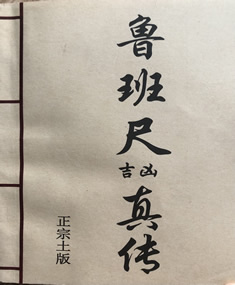 鲁班尺
吉凶
真传
正宗土版